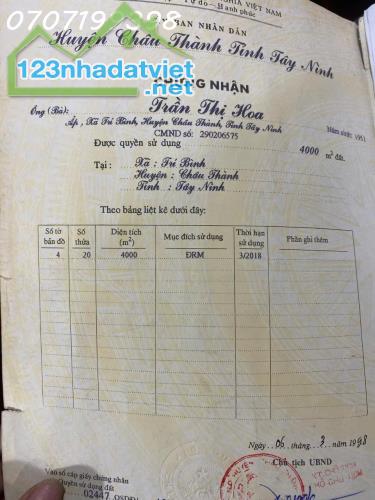 HĨA VIỆT NAM
Tự do - Hạnh phúc
BAN NHÂN DÂN
Huyện Châu Thành Tỉnh Tây Ninh
123nhadatviet
.net
NHẬN
Ông (Bà): Trần Thị Hoa Năm sinh: 1951
Ấp, Xã Trí Bình, Huyện Châu Thành, Tỉnh Tây Ninh
CMND số: 290206575
Được quyền sử dụng 4000 m² đất.
Tại : Xã : Trí Bình
Huyện : Châu Thành
Tỉnh : Tây Ninh
Theo bảng liệt kê dưới đây:
Số tờ bản đồ Số thửa Diện tích (m²) Mục đích sử dụng Thời hạn sử dụng Phần ghi thêm
4 20 4000 ĐRM 3/2018
Ngày 06 tháng 3 năm 1998
Chủ tịch UBND
Vào sổ cấp giấy chứng nhận
Quyền sử dụng đất
02447 QSDĐ